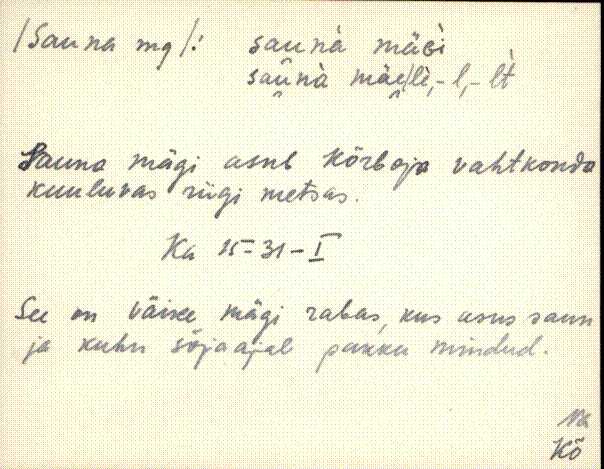 /Sauna mg/: saunà mäGì
saunà mäe/lè, -l, -lt̀
Sauna mägi asub Kõrboja vahtkonda
kuuluvas riigi metsas.
Ka 15-31-I
See on väike mägi rabas, kus asus saun
ja kuhu sõjaajal pakku mindud.
Va
Kõ